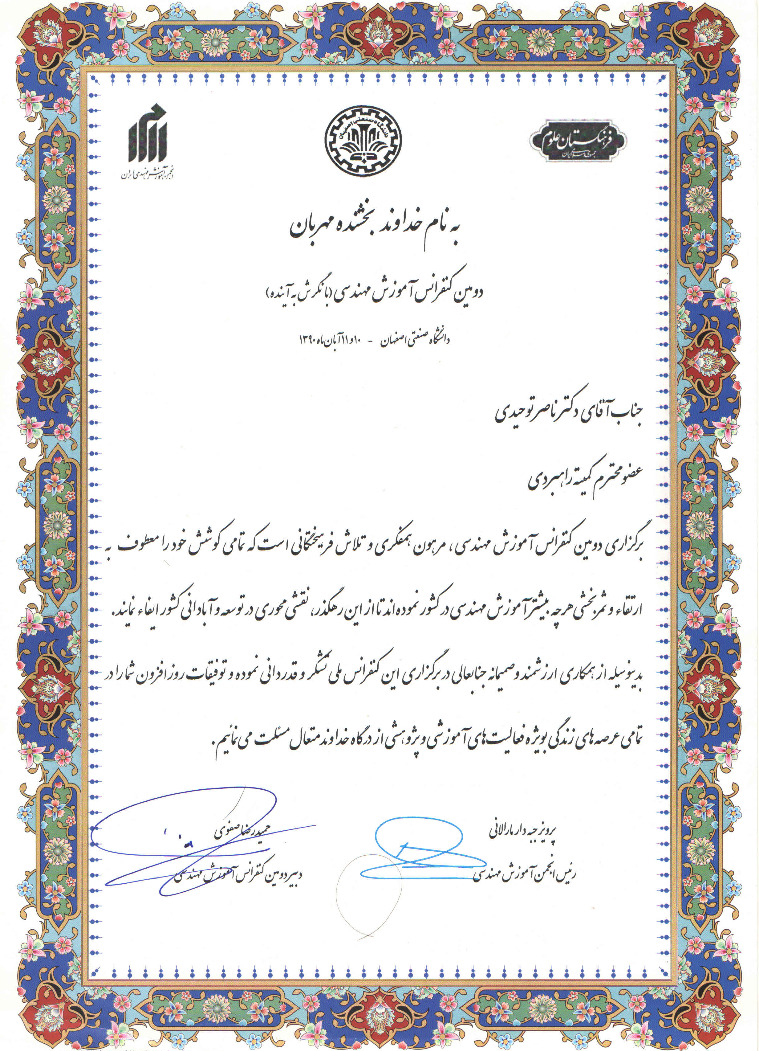 فرهنگستان علوم
جمهوری اسلامی ایران
انجمن آموزش مهندسی ایران
به نام خداوند بخشنده مهربان
دومین کنفرانس آموزش مهندسی (با نگرش به آینده)
دانشگاه صنعتی اصفهان - ۱۰ و ۱۱ آبان ماه ۱۳۹۰
جناب آقای دکتر ناصر توحیدی
عضو محترم کمیته راهبردی
برگزاری دومین کنفرانس آموزش مهندسی، مرهون همفکری و تلاش فرهیختگانی است که تمامی کوشش خود را معطوف به
ارتقاء و ثمربخشی هرچه بیشتر آموزش مهندسی در کشور نموده اند تا از این رهگذر، نقشی محوری در توسعه و آبادانی کشور ایفاء نمایند.
بدینوسیله از همکاری ارزشمند و صمیمانه جنابعالی در برگزاری این کنفرانس ملی تشکر و قدردانی نموده و توفیقات روزافزون شما را در
تمامی عرصه های زندگی بویژه فعالیت های آموزشی و پژوهشی از درگاه خداوند متعال مسئلت می نمائیم.
پرویز جبه دار مارالانی
رئیس انجمن آموزش مهندسی
حمیدرضا صفوی
دبیر دومین کنفرانس آموزش مهندسی